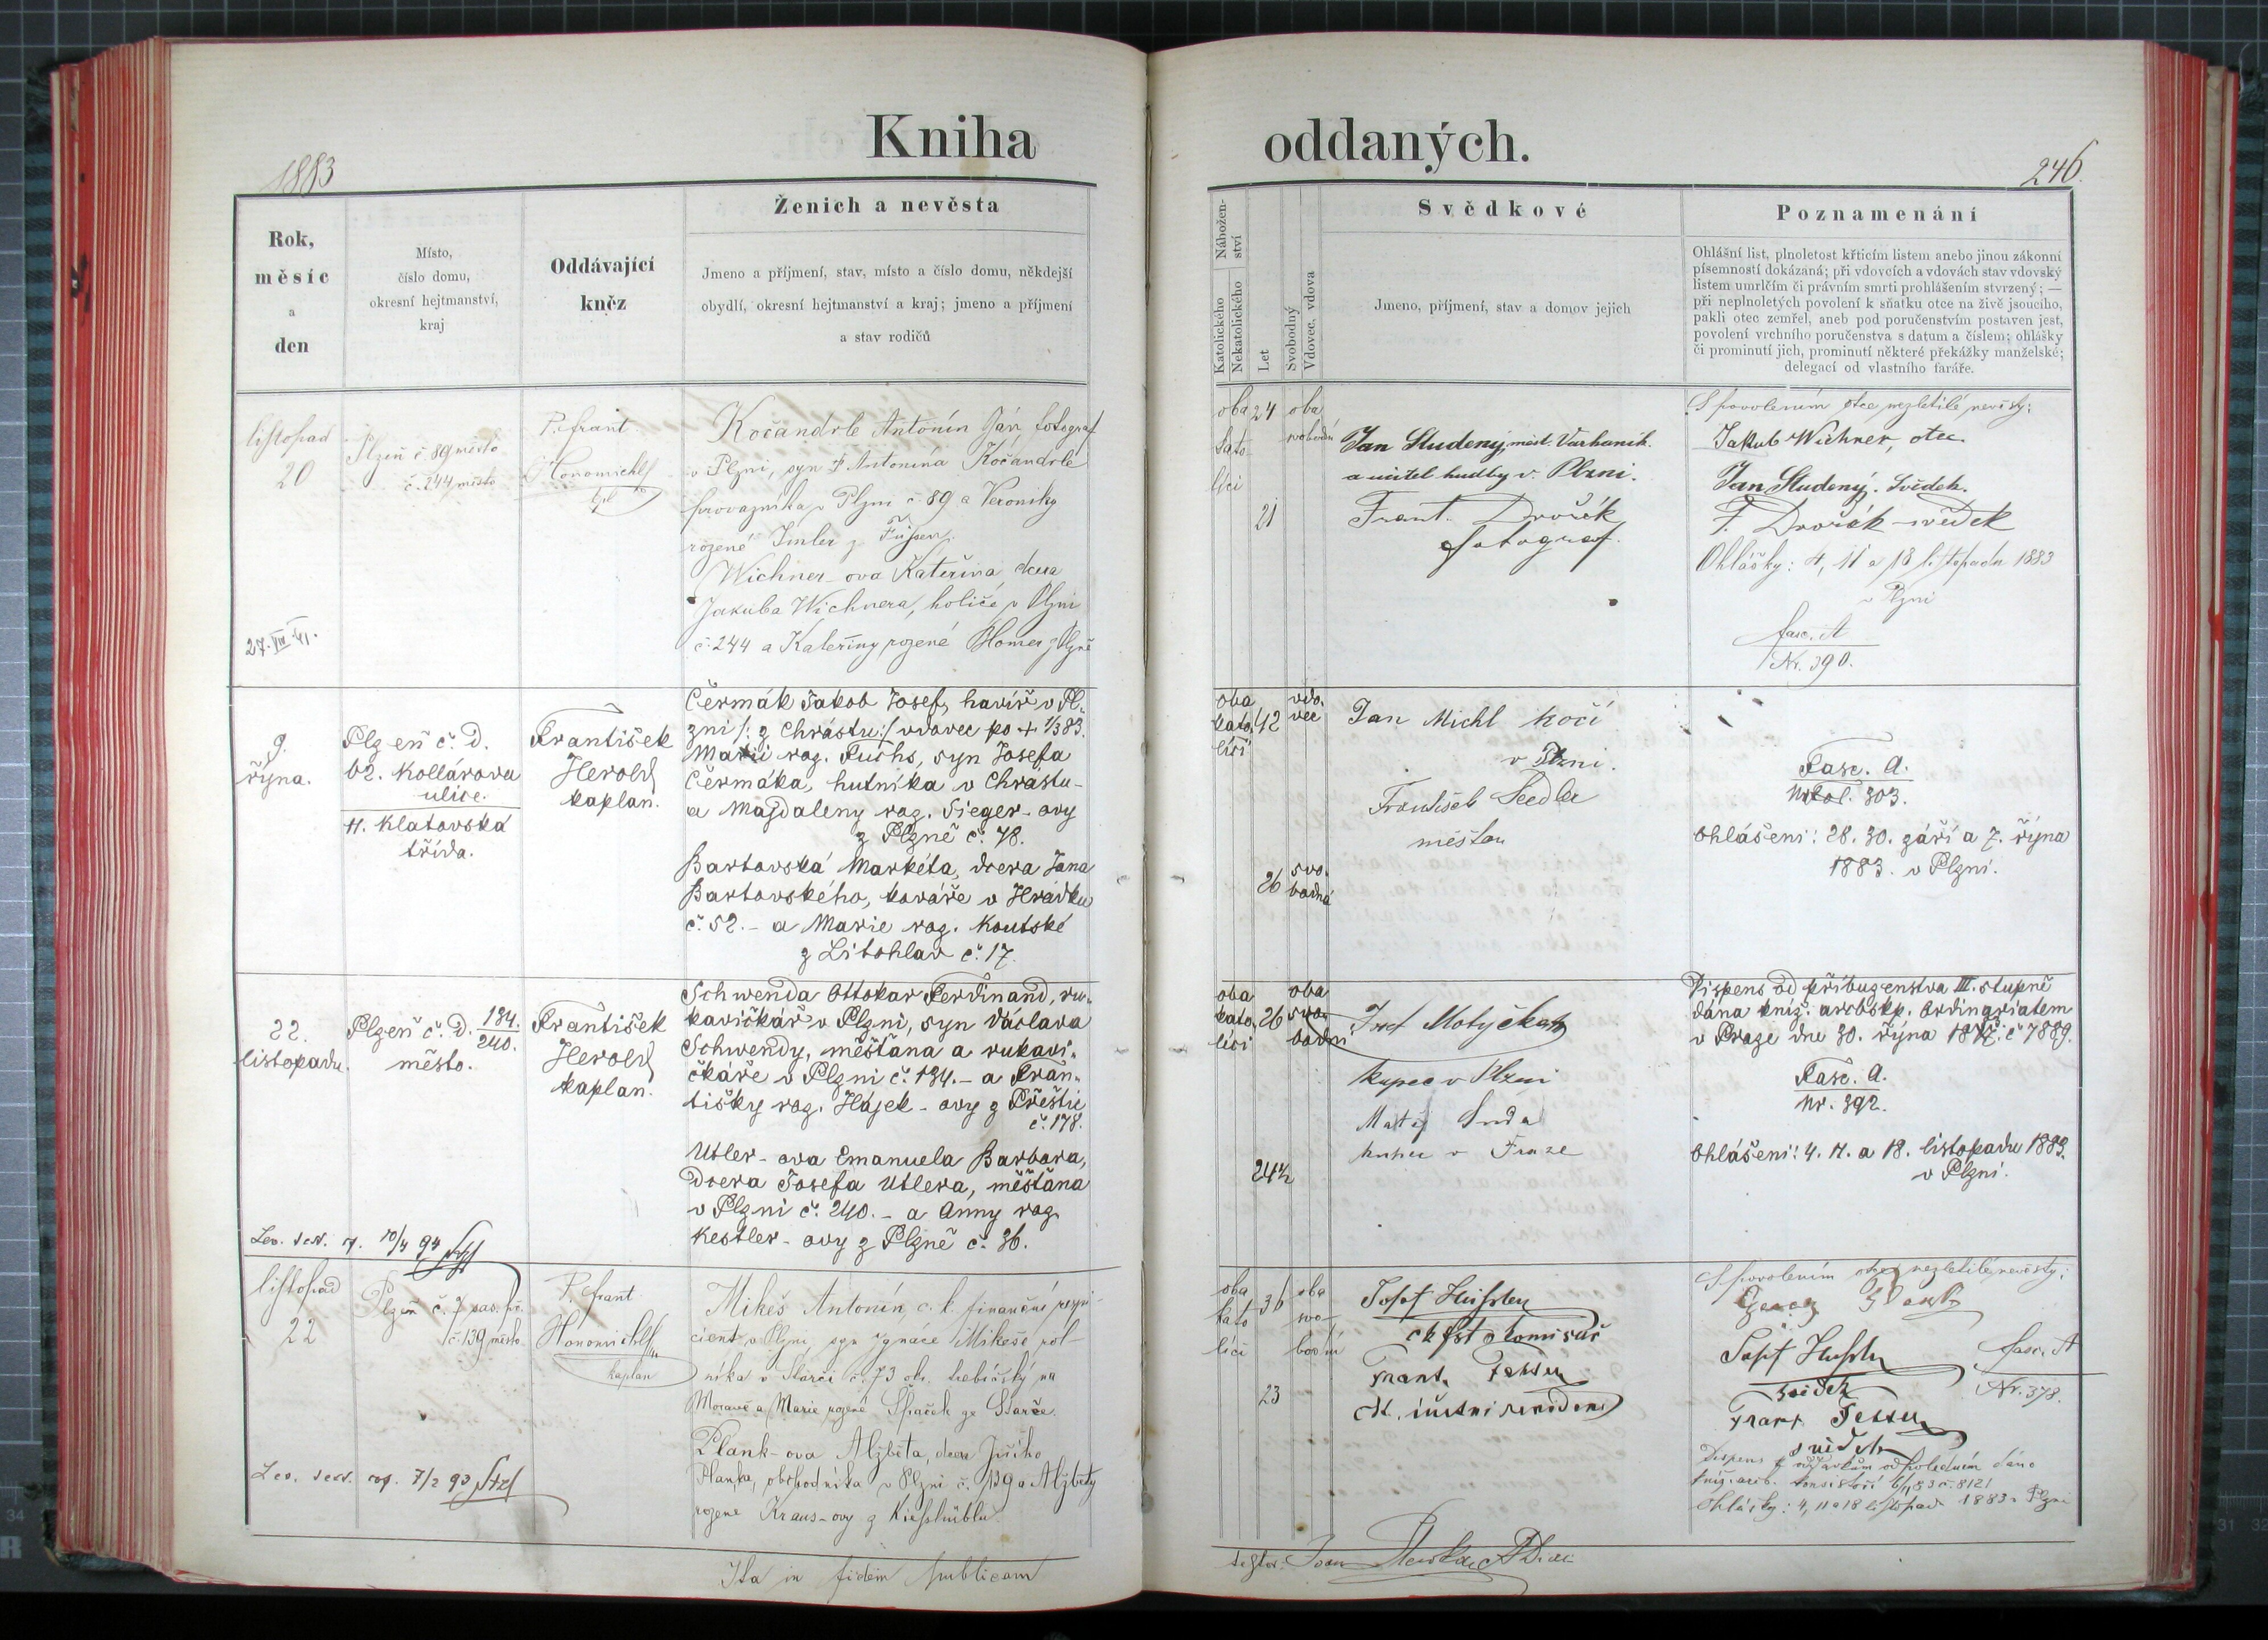 Kniha oddaných.
1883
246.
Rok,
měsíc
a
den
Místo,
číslo domu,
okresní hejtmanství,
kraj
Oddávající
kněz
Ženich a nevěsta
Jmeno a příjmení, stav, místo a číslo domu, někdejší
obydlí, okresní hejtmanství a kraj; jmeno a příjmení
a stav rodičů
Nábožen-
ství
Katolického
Nekatolického
Let
Svobodný
Vdovec, vdova
Svědkové
Jmeno, příjmení, stav a domov jejich
Poznamenání
Ohlášní list, plnoletost křticím listem anebo jinou zákonní
písemností dokázaná; při vdovcích a vdovách stav vdovský
listem umrlčím či právním smrti prohlášením stvrzený; —
při neplnoletých povolení k sňatku otce na živě jsoucího,
pakli otec zemřel, aneb pod poručenstvím postaven jest,
povolení vrchního poručenstva s datum a číslem; ohlášky
či prominutí jich, prominutí některé překážky manželské;
delegací od vlastního faráře.
listopad
20
27. VIII. 41.
Plzeň č 89 město
č. 244 město
P. Frant.
Honomichl
kpl
Kočandrle Antonín Jan fotograf
v Plzni, syn † Antonína Kočandrle
provazníka v Plzni č 89 a Veroniky
rozené Imler z Füssen.
Wichner-ova Kateřina dcera
Jakuba Wichnera, holiče v Plzni
č. 244 a Kateřiny rozené Homer z Plzně
oba
kato
líci
24
21
oba
svobodni
Jan Studený, měst. Varhaník.
a učitel hudby v. Plzni.
Frant. Dvořák
fotograf.
S povolením otce nezletilé nevěsty:
Jakub Wichner, otec
Jan Studený. Svědek.
F. Dvořák svědek
Ohlášky: 4, 11 a 18 listopadu 1883
v Plzni
fasc. A
Nr. 390.
9.
října.
Plzeň č. D.
62. Kollárova
ulice.
11. Klatovská
třída.
František
Herold
kaplan.
Čermák Jakob Josef, havíř v Pl-
zni /: z Chrástu:/ vdovec po + 1/3 83.
Marii roz. Fuchs, syn Josefa
Čermáka, hutníka v Chrástu-
a Magdaleny roz. Sieger-ovy
z Plzně č. 78.
Bartovská Markéta, dcera Jana
Bartovského, kováře v Hrádku
č. 52. - a Marie roz. Koutské
z Litohlav č. 17.
oba
kato.
líci
42
26
vdo.
vec
svo.
bodná
Jan Michl kočí
v Plzni.
František Seedler
měšťan
Fasc. A.
fol. 303.
Ohlášení: 28. 30. září a 7. října
1883. v Plzni.
22.
listopadu.
Plzeň č. D. 134.
240.
město.
František
Herold
kaplan.
Schwenda Ottokar Ferdinand, ru-
kavičkář v Plzni, syn Václava
Schwendy, měšťana a rukavi-
čkáře v Plzni č. 134. - a Fran-
tišky roz. Hájek-ovy z Přeštic
č. 178.
Utler-ova Emanuela Barbora,
Dcera Josefa Utlera, měšťana
v Plzni č. 240. - a Anny roz.
Kestler-ovy z Plzně č. 36.
oba
kato.
líci
26
24½
oba
svo.
bodni
Josef Motyčka
kupec v Plzni
Matěj Suda
kupec v Praze
Dispens od příbuzenstva III. stupně
dána kníž. arcbskp. Ordinariatem
v Praze dne 30. října č 7889.
Fasc. A.
Nr. 392.
Ohlášení: 4. 11. a 18. listopadu 1883.
v Plzni.
10/4 94
listopad
22
Plzeň č. 7
č. 139 město
P. Frant
Honomichl
kaplan
Mikeš Antonín, c. k. finanční respi-
cient v Plzni, syn Ignáce Mikeše rol-
níka v Starči č. 73 ok. trebíčský na
Moravě a Marie rozené Spaček ze Starče.
Plank-ova Alžběta, dcera Jiřího
Planka, obchodníka v Plzni č. 139 a Alžběty
rozené Kraus-ovy z Kieslhüblu.
7/2 93
oba
kato
líci
36
23
oba
svo-
bodni
Frant. Tesser
S povolením otce nezletilé nevěsty:
Plank
svědek
Frant. Tesser
svědek
fasc. A
Nr. 378.
Ohlášky: 4, 11 a 18 listopad 1883 v Plzni
Ita in fidem publicam